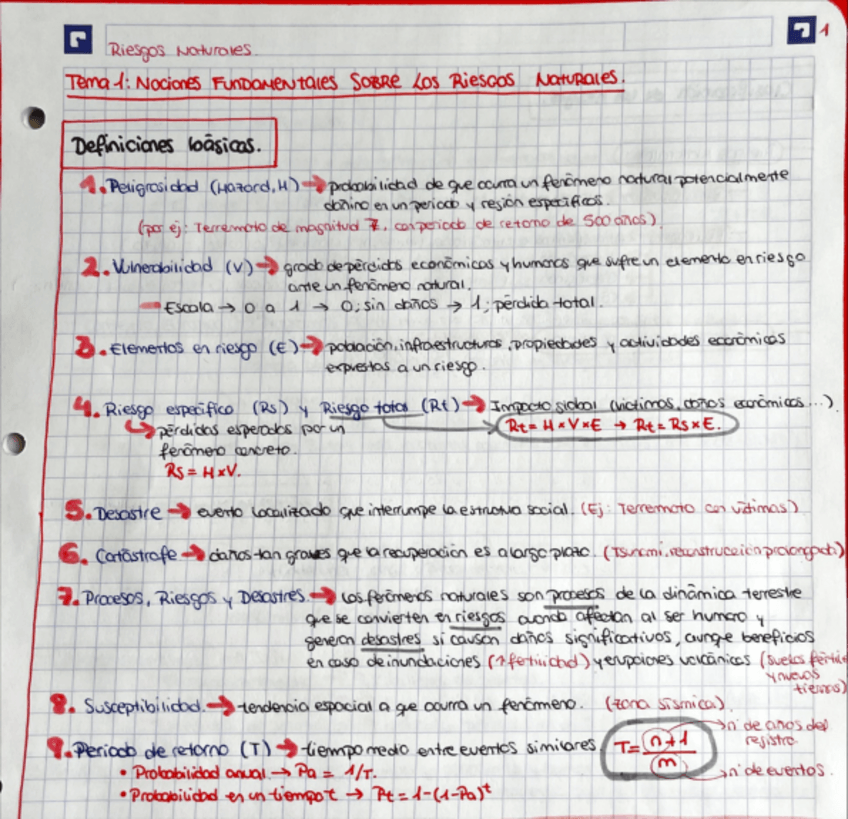 Riesgos Naturales.
1
Tema 1: Nociones Fundamentales sobre los Riesgos Naturales.
Definiciones básicas.
1. Peligrosidad (Hazard, H) → probabilidad de que ocurra un fenómeno natural potencialmente
dañino en un periodo y región específicos.
(por ej: Terremoto de magnitud 7, con periodo de retorno de 500 años)
2. Vulnerabilidad (V) → grado de pérdidas económicas y humanas que sufre un elemento en riesgo
ante un fenómeno natural.
Escala → 0 a 1 → 0; sin daños → 1; pérdida total.
3. Elementos en riesgo (E) → población, infraestructuras, propiedades y actividades económicas
expuestas a un riesgo.
4. Riesgo específico (Rs) y Riesgo total (Rt) → Impacto global (víctimas, daños económicos...)
↳ pérdidas esperadas por un
Rt = H x V x E → Rt = Rs x E.
fenómeno concreto.
Rs = H x V.
5. Desastre → evento localizado que interrumpe la estructura social. (Ej: Terremoto con víctimas)
6. Catástrofe → daños tan graves que la recuperación es a largo plazo. (Tsunami, reconstrucción prolongada)
7. Procesos, Riesgos y Desastres → Los fenómenos naturales son procesos de la dinámica terrestre
que se convierten en riesgos cuando afectan al ser humano y
generan desastres si causan daños significativos, aunque beneficios
en caso de inundaciones (↑ fertilidad) y erupciones volcánicas (suelos fértiles
y nuevas
tierras)
8. Susceptibilidad. → tendencia espacial a que ocurra un fenómeno. (zona sísmica).
9. Periodo de retorno (T) → tiempo medio entre eventos similares. T = (n+1)/m
nº de años del
registro.
nº de eventos.
• Probabilidad anual → Pa = 1/T.
• Probabilidad en un tiempo t → Pt = 1-(1-Pa)^t